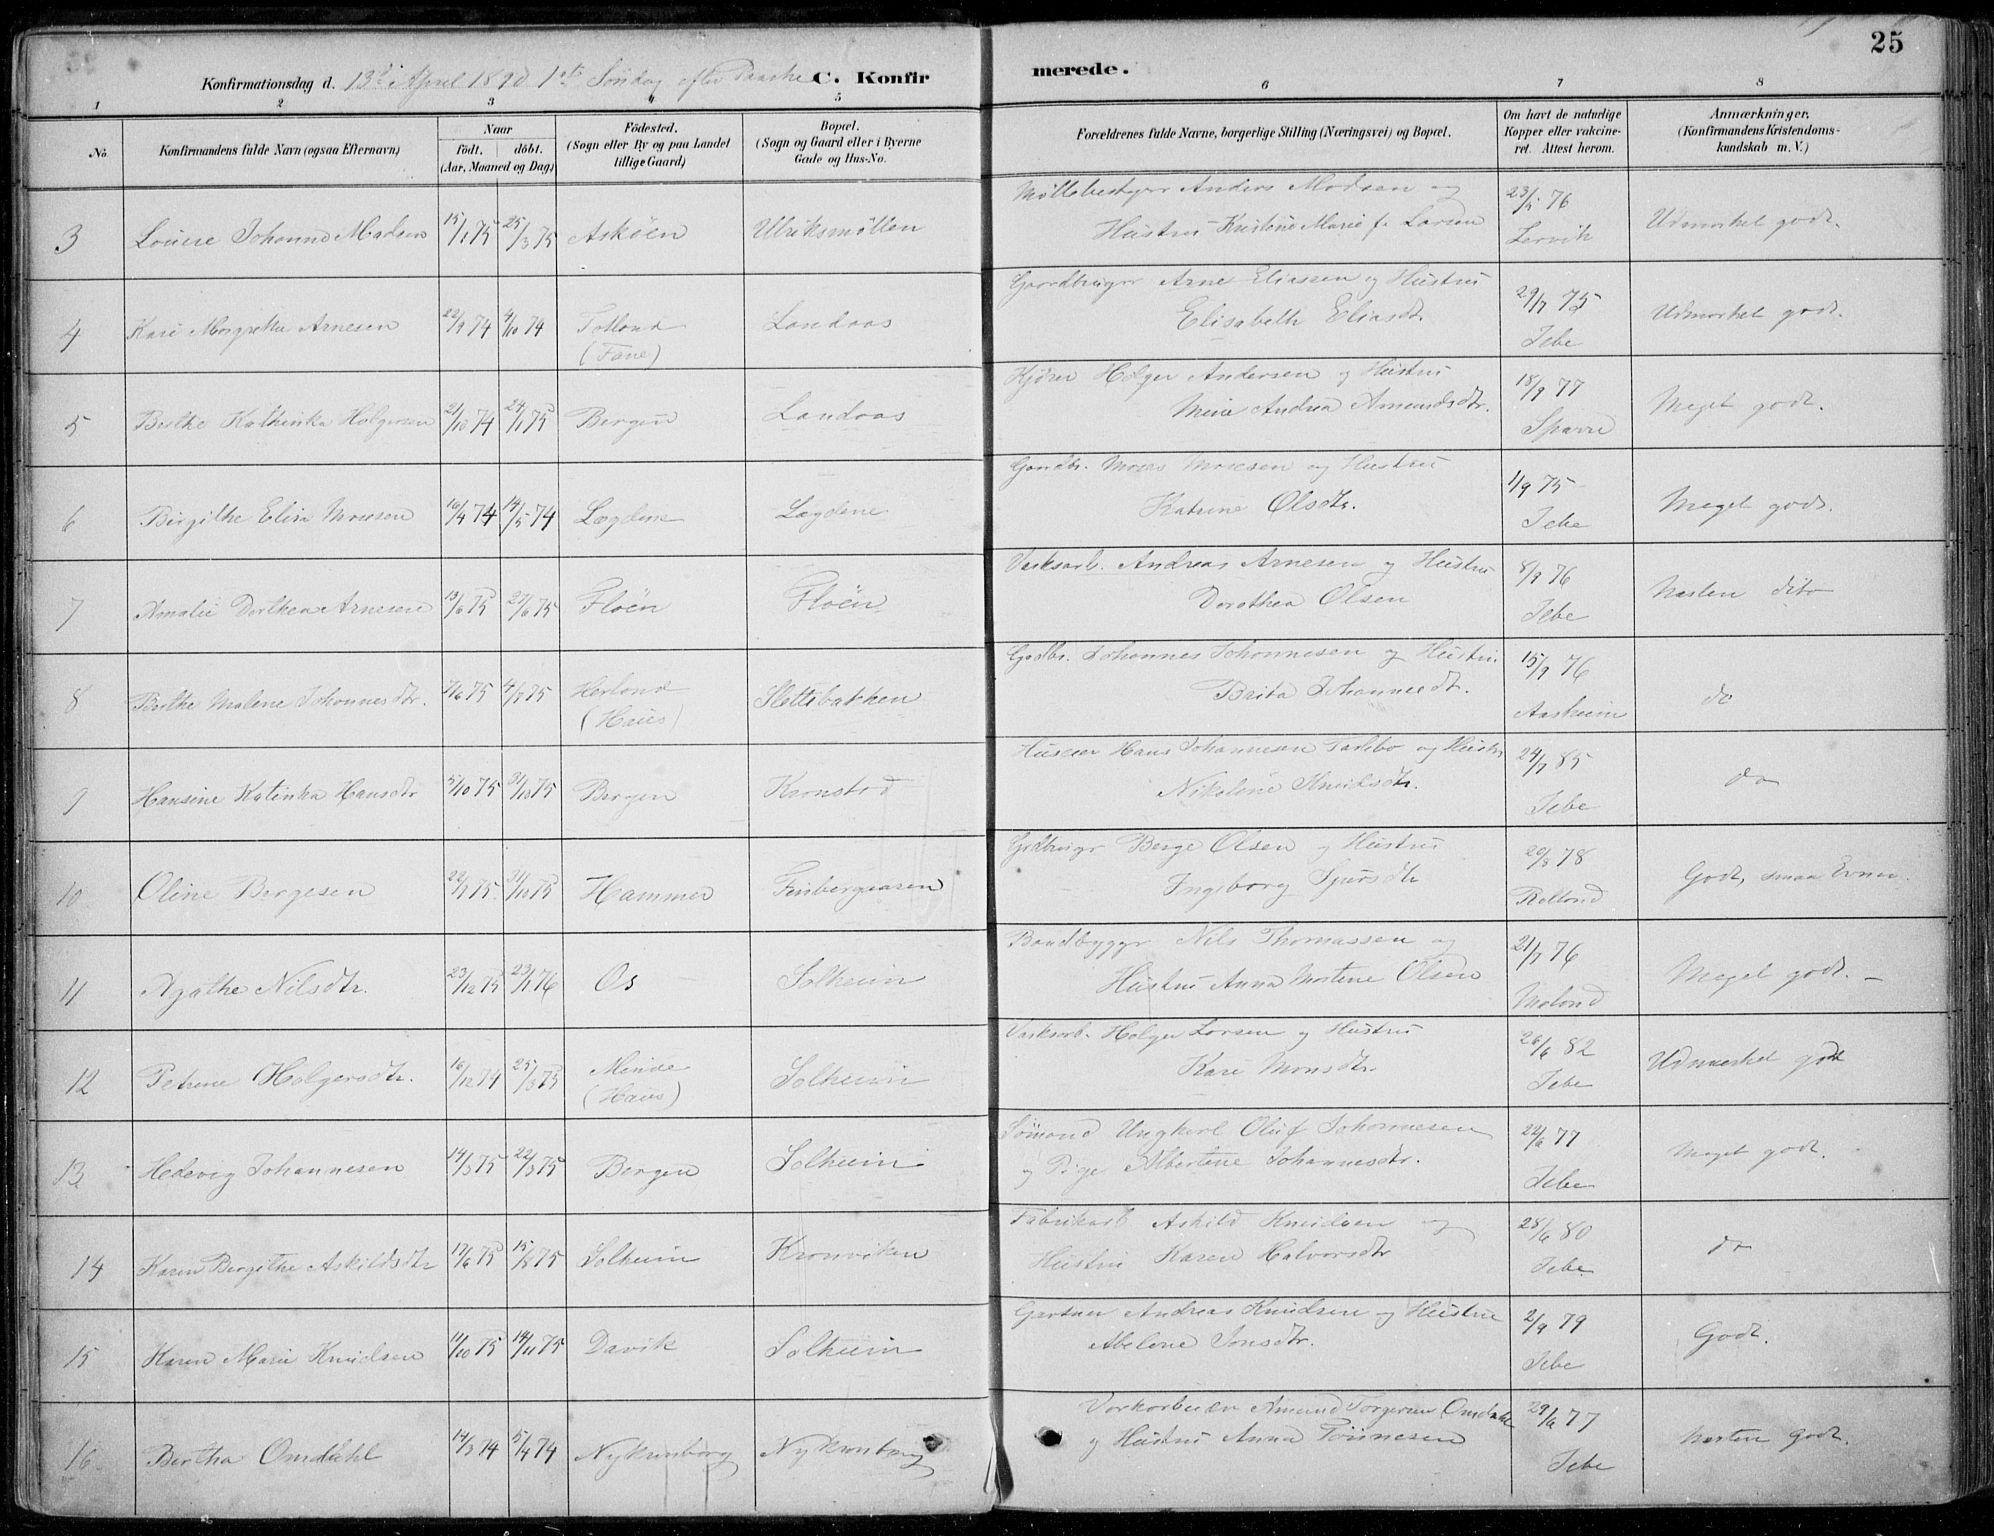 25
Konfirmationsdag d. 13de April 1890 1ste Søndag efter Paaske C. Konfirmerede.
1 2 3 4 5 6 7 8
No.
Konfirmandens fulde Navn (ogsaa Efternavn)
Naar
födt. döbt.
(Aar, Maaned og Dag)
Födested.
(Sogn eller By og paa Landet
tillige Gaard)
Bopæl.
(Sogn og Gaard eller i Byerne
Gade og Hus-No.
Forældrenes fulde Navne, borgerlige Stilling (Næringsvei) og Bopæl.
Om havt de naturlige
Kopper eller vakcine-
ret. Attest herom.
Anmærkninger.
(Konfirmandens Kristendoms-
kundskab m. V.)
3 Louise Johanne Madsen 15/1 75 25/3 75 Askøen Ulriksmøllen
Møllebestyrer Anders Madsen og
Hustru Kristine Marie f. Larsen
23/5 76
Lervik
Udmærket godt.
4 Kari Margretha Arnesen 22/9 74 4/10 74 Totland
(Fane)
Landaas
Gaardbruger Arne Eliassen og Hustru
Elisabeth Eliasdtr.
29/7 75
Jebe
Udmærket godt.
5 Berthe Kathinka Holgersen 21/10 74 24/1 75 Bergen Landaas
Kjører Holger Andersen og Hustru
Andrea Amundsdtr.
18/9 77
Sparre
Meget godt.
6 Birgithe Elisa Monsen 16/4 74 14/5 74 Lægdene Lægdene
Gaardbr. Mons Monsen og Hustru
Katrine Olsdtr.
1/9 75
Jebe
Meget godt.
7 Amalie Dorthea Arnesen 13/6 75 27/6 75 Fløen Fløen
Værksarb. Andreas Arnesen og Hustru
Dorothea Olsen
8/9 76
Jebe
Næsten dito
8 Berthe Malene Johannesdtr. 7/6 75 4/7 75 Herland
(Haus)
Slettebakken
Gaardbr. Johannes Johannesen og Hustru
Brita Johannesdtr.
15/9 76
Aasheim
do
9 Hansine Katinka Hansdtr 5/10 75 31/10 75 Bergen Kronstad
Huseier Hans Johannesen Tarlebo og Hustru
Nikoline Knudsdtr.
24/7 85
Jebe
do
10 Oline Bergesen 22/9 75 31/10 75 Hammer Finbergaasen
Grdbruger Berge Olsen og Hustru
Ingeborg Sjursdtr
20/8 78
Godt, smaa Evner.
11 Agathe Nilsdtr. 23/12 75 23/1 76 Os Solheim
Baadbygger Nils Thomassen og
Hustru Anna Martene Olsen
21/7 76
Meget godt.
12 Petrine Holgersdtr. 16/12 74 25/3 75 Minde
(Haus)
Solheim
Værksarb. Holger Larsen og Hustru
Kari Monsdtr.
26/6 82
Jebe
Udmærket godt
13 Hedevig Johannesen 14/3 75 22/3 75 Bergen Solheim
Sømand Ungkarl Oluf Johannesen
og Pige Albertine Johannesdtr.
22/6 77
Jebe
Meget godt.
14 Karen Bergithe Askildsdtr 17/6 75 15/8 75 Solheim Kronviken
Fabrikarb. Askild Knudsen og
Hustru Karen Halvorsdtr
28/6 80
Jebe
do
15 Karen Marie Knudsen 11/10 75 14/11 75 Davik Solheim
Gartner Andreas Knudsen og Hustru
Abelone Jonsdtr.
2/9 79
Jebe
Godt.
16 Bertha Omdahl 14/3 74 5/4 74 Nykronborg Nykronborg
Amund Torgersen Omdahl
og Hustru Anna Tønnesen
29/6 77
Jebe
Næsten godt.